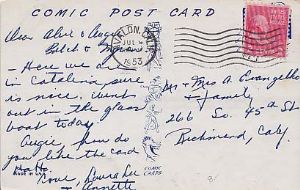 COMIC POST CARD
Dear Abie & Augie
Butch &
AVALON, CALIF.
JUL
1953
Here we are
in Catalina sure
is nice. Went
out in the glass
boat today.
Augie how do
you like the card
Ha Ha.
Love,
Annette
Mr & Mrs A Evangelho
& Family
266 So. 45th St
Richmond, Calif
COMIC
CARTS